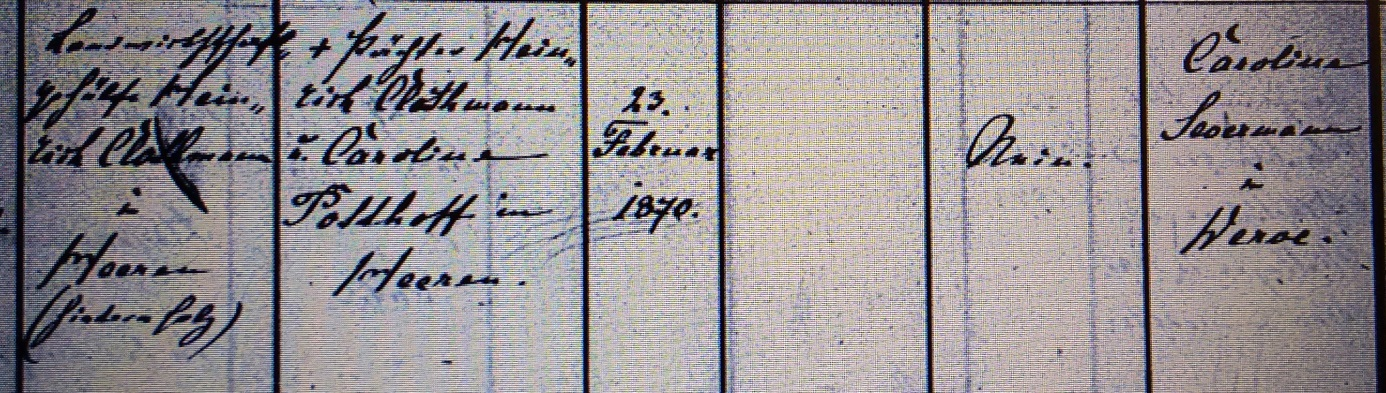 Landwirthschafts
gehülfe Hein„
rich Clothmann
in
Heeren
+ Pächter Hein„
rich Clothmann
u. Caroline
Potthoff in
Heeren.
23.
Februar
1870.
Nein.
Caroline
Severmann
in
Werve.